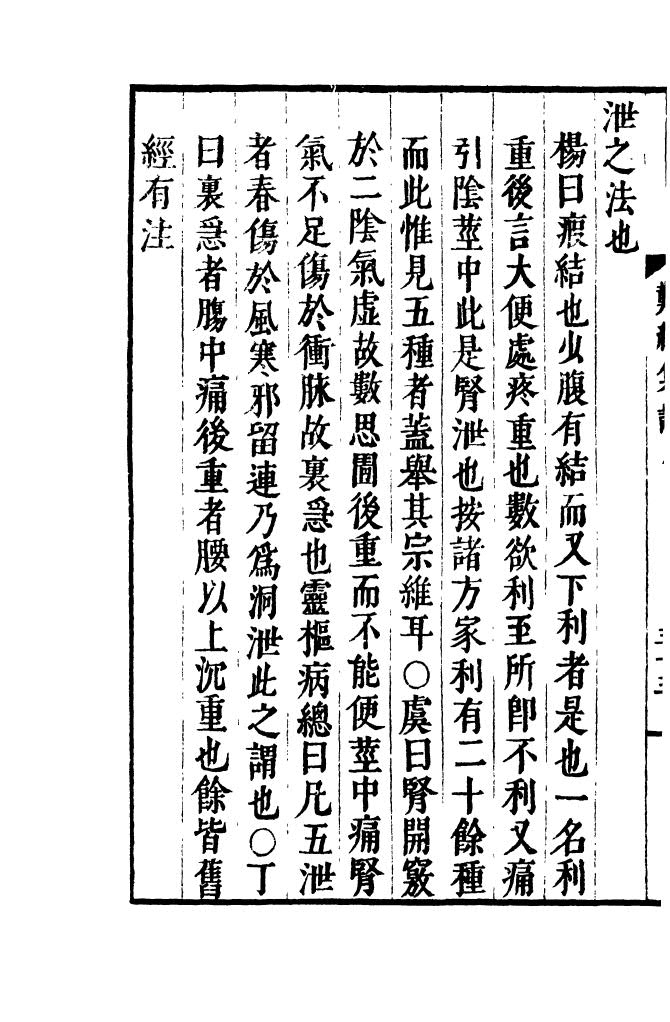 泄之法也
楊曰瘕結也少腹有結而又下利者是也一名利
重後言大便處疼重也數欲利至所卽不利又痛
引陰莖中此是腎泄也按諸方家利有二十餘種
而此惟見五種者蓋舉其宗維耳○虞曰腎開竅
於二陰氣虛故數思圊後重而不能便莖中痛腎
氣不足傷於衝脉故裏急也靈樞病總曰凡五泄
者春傷於風寒邪留連乃爲洞泄此之謂也○丁
曰裏急者腸中痛後重者腰以上沉重也餘皆舊
經有注